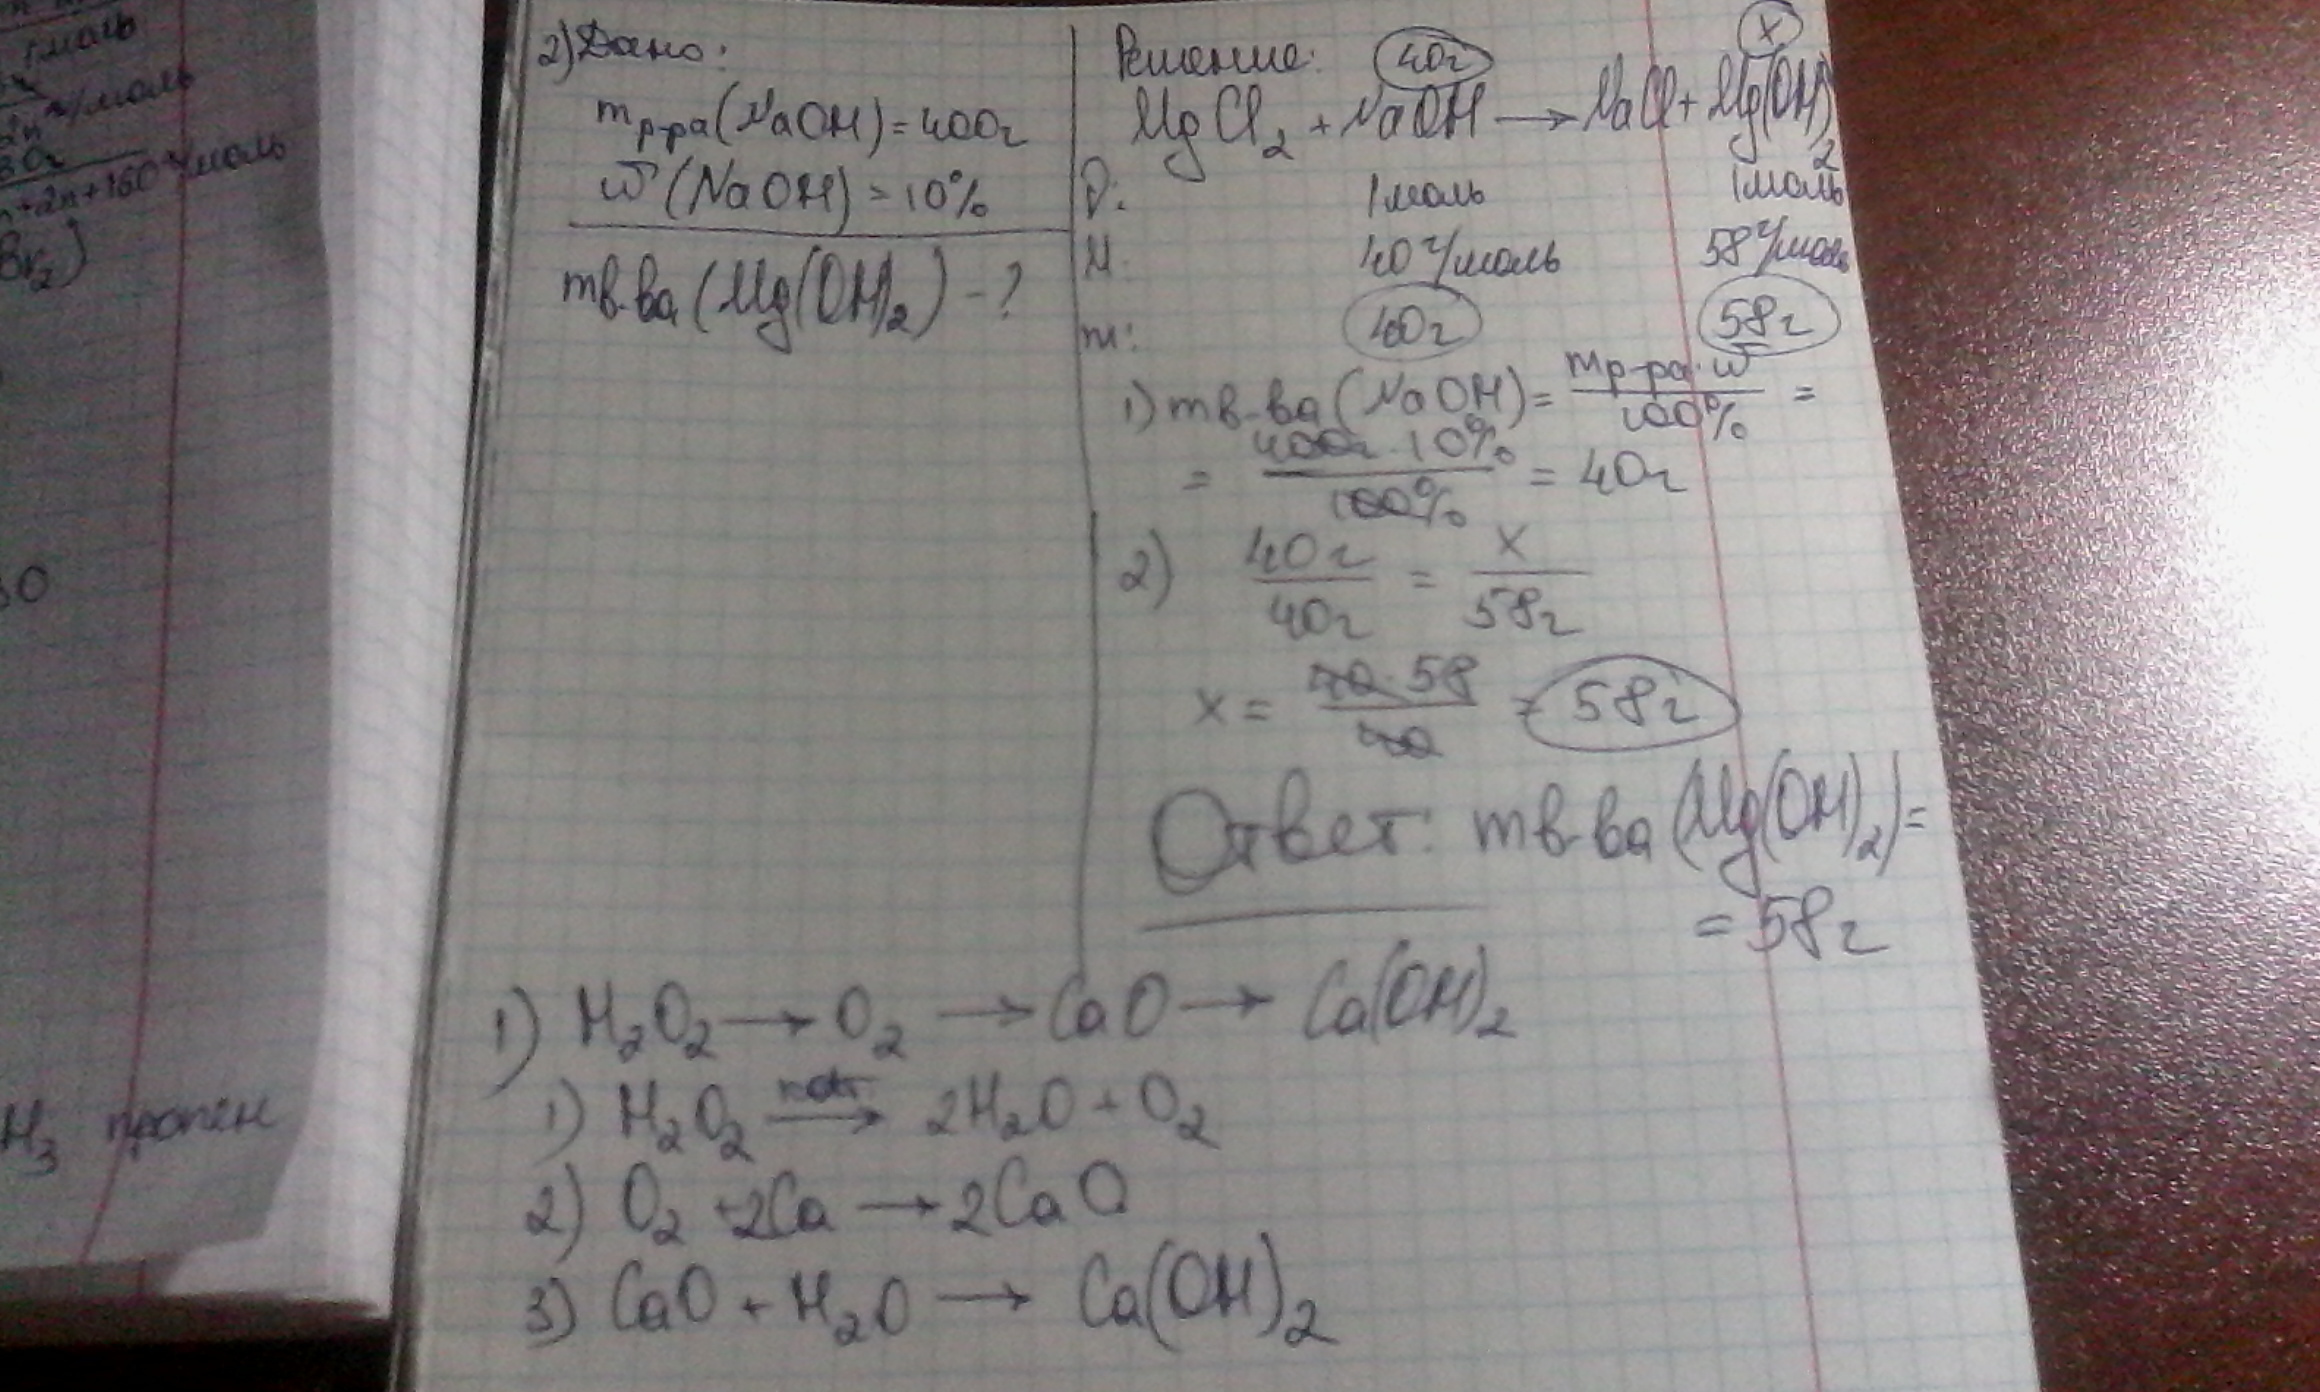 1моль
2n г/моль
80г
n+2n+160 г/моль
Br₂)
30
H₃ пропен
2) Дано:
mр-ра(NaOH) = 400г
w(NaOH) = 10%
mв-ва(Mg(OH)₂) - ?
Решение: 40г x
MgCl₂ + NaOH → NaCl + Mg(OH)₂
ν: 1моль 1моль
M: 40 г/моль 58 г/моль
m: 40г 58г
1) mв-ва(NaOH) = mр-ра·w / 100% =
= 400г·10% / 100% = 40г
2) 40г / 40г = x / 58г
x = 40·58 / 40 = 58г
Ответ: mв-ва(Mg(OH)₂) =
= 58г
1) H₂O₂ → O₂ → CaO → Ca(OH)₂
1) H₂O₂ кат. → 2H₂O + O₂
2) O₂ + 2Ca → 2CaO
3) CaO + H₂O → Ca(OH)₂